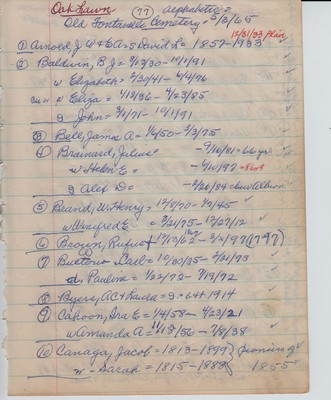 Oak Lawn (77) Alphabetic =
Old Fontanelle Cemetery = 5/8/65
12/31/33 plain
① Arnold, J W & EA = s David L = 1857-1933
② Baldwin, B J = 8/13/30 - 10/1/91
w Elizabeth = 2/30/41 - 4/4/76
w Eliza = 4/13/36 - 4/23/85
s John = 3/1/71 - 10/1/91
③ Bell, James A = 1/4/50 - 3/3/75
④ Brainard, Julius = - 9/16/81 = 66 yr
w Helen E = - 4/10/97
s Alex D = - 3/20/84
⑤ Brand, W. Henry = 12/8/70 - 1/9/45
w Winifred E = 3/21/75 - 12/27/12
⑥ Brown, Rufus = 1/10/62 - 3/2/97 (1797)
⑦ 10/30/35 - 4/21/93
Paulina = 1/22/73 - 7/19/73
⑧ Byers, AC & Laura = s = 6+ 1914
⑨ Cahoon, Ira E = 1/4/58 - 4/23/21
w Amanda A = 11/18/56 - 7/8/38
⑩ Canaga, Jacob = 1813-1899 } pioneers of
w - Sarah = 1815-1888 } 1855